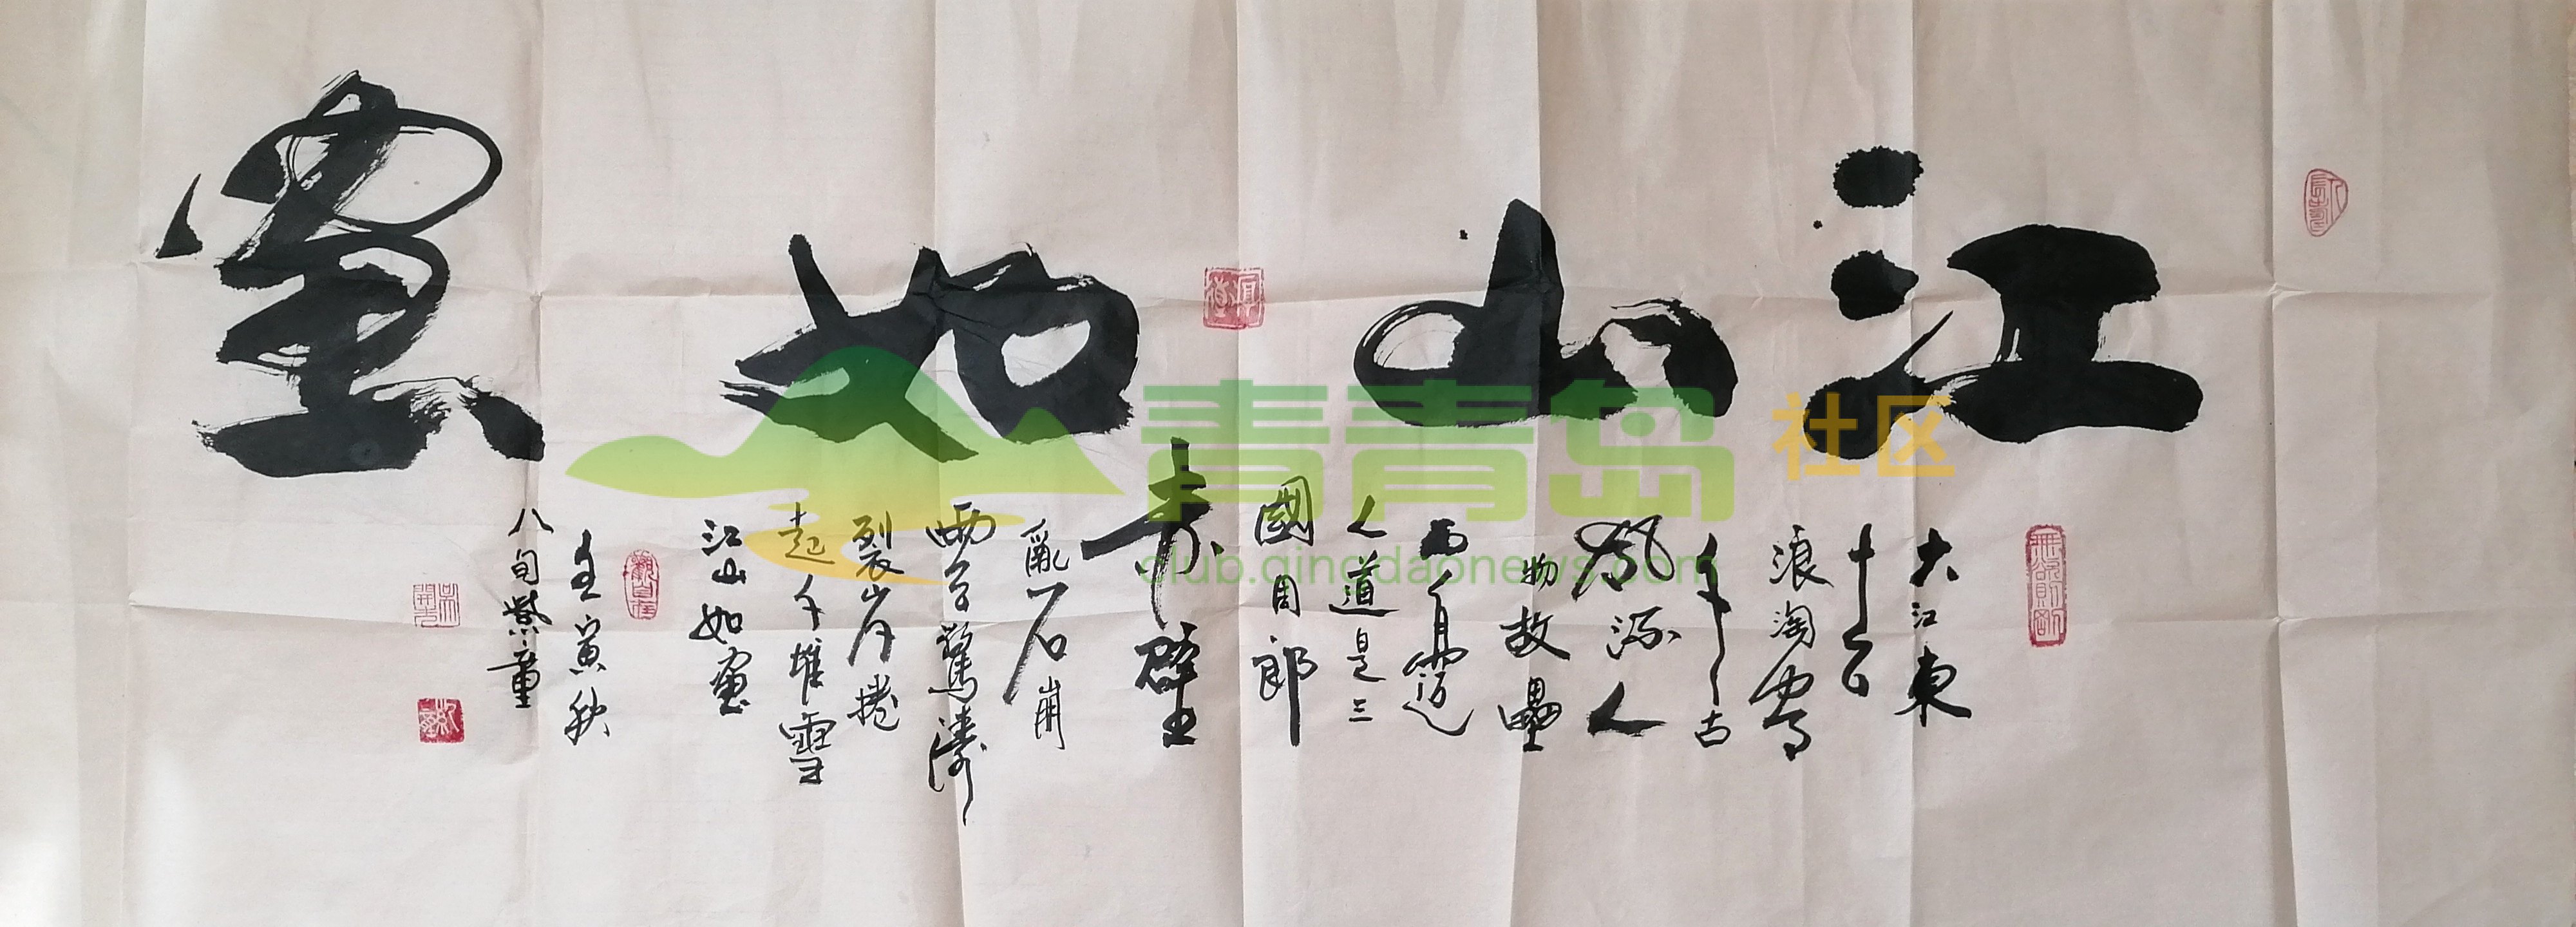 江山如畫
大江東
去
浪淘盡
千古
風流人
物故壘
西邊
人道是三
國周郎
赤壁
亂石崩
雲驚濤
裂岸捲
起千堆雪
江山如畫
壬寅秋
八旬紫童
無欲則剛
觀自在
青青岛社区
club.qingdaonews.com